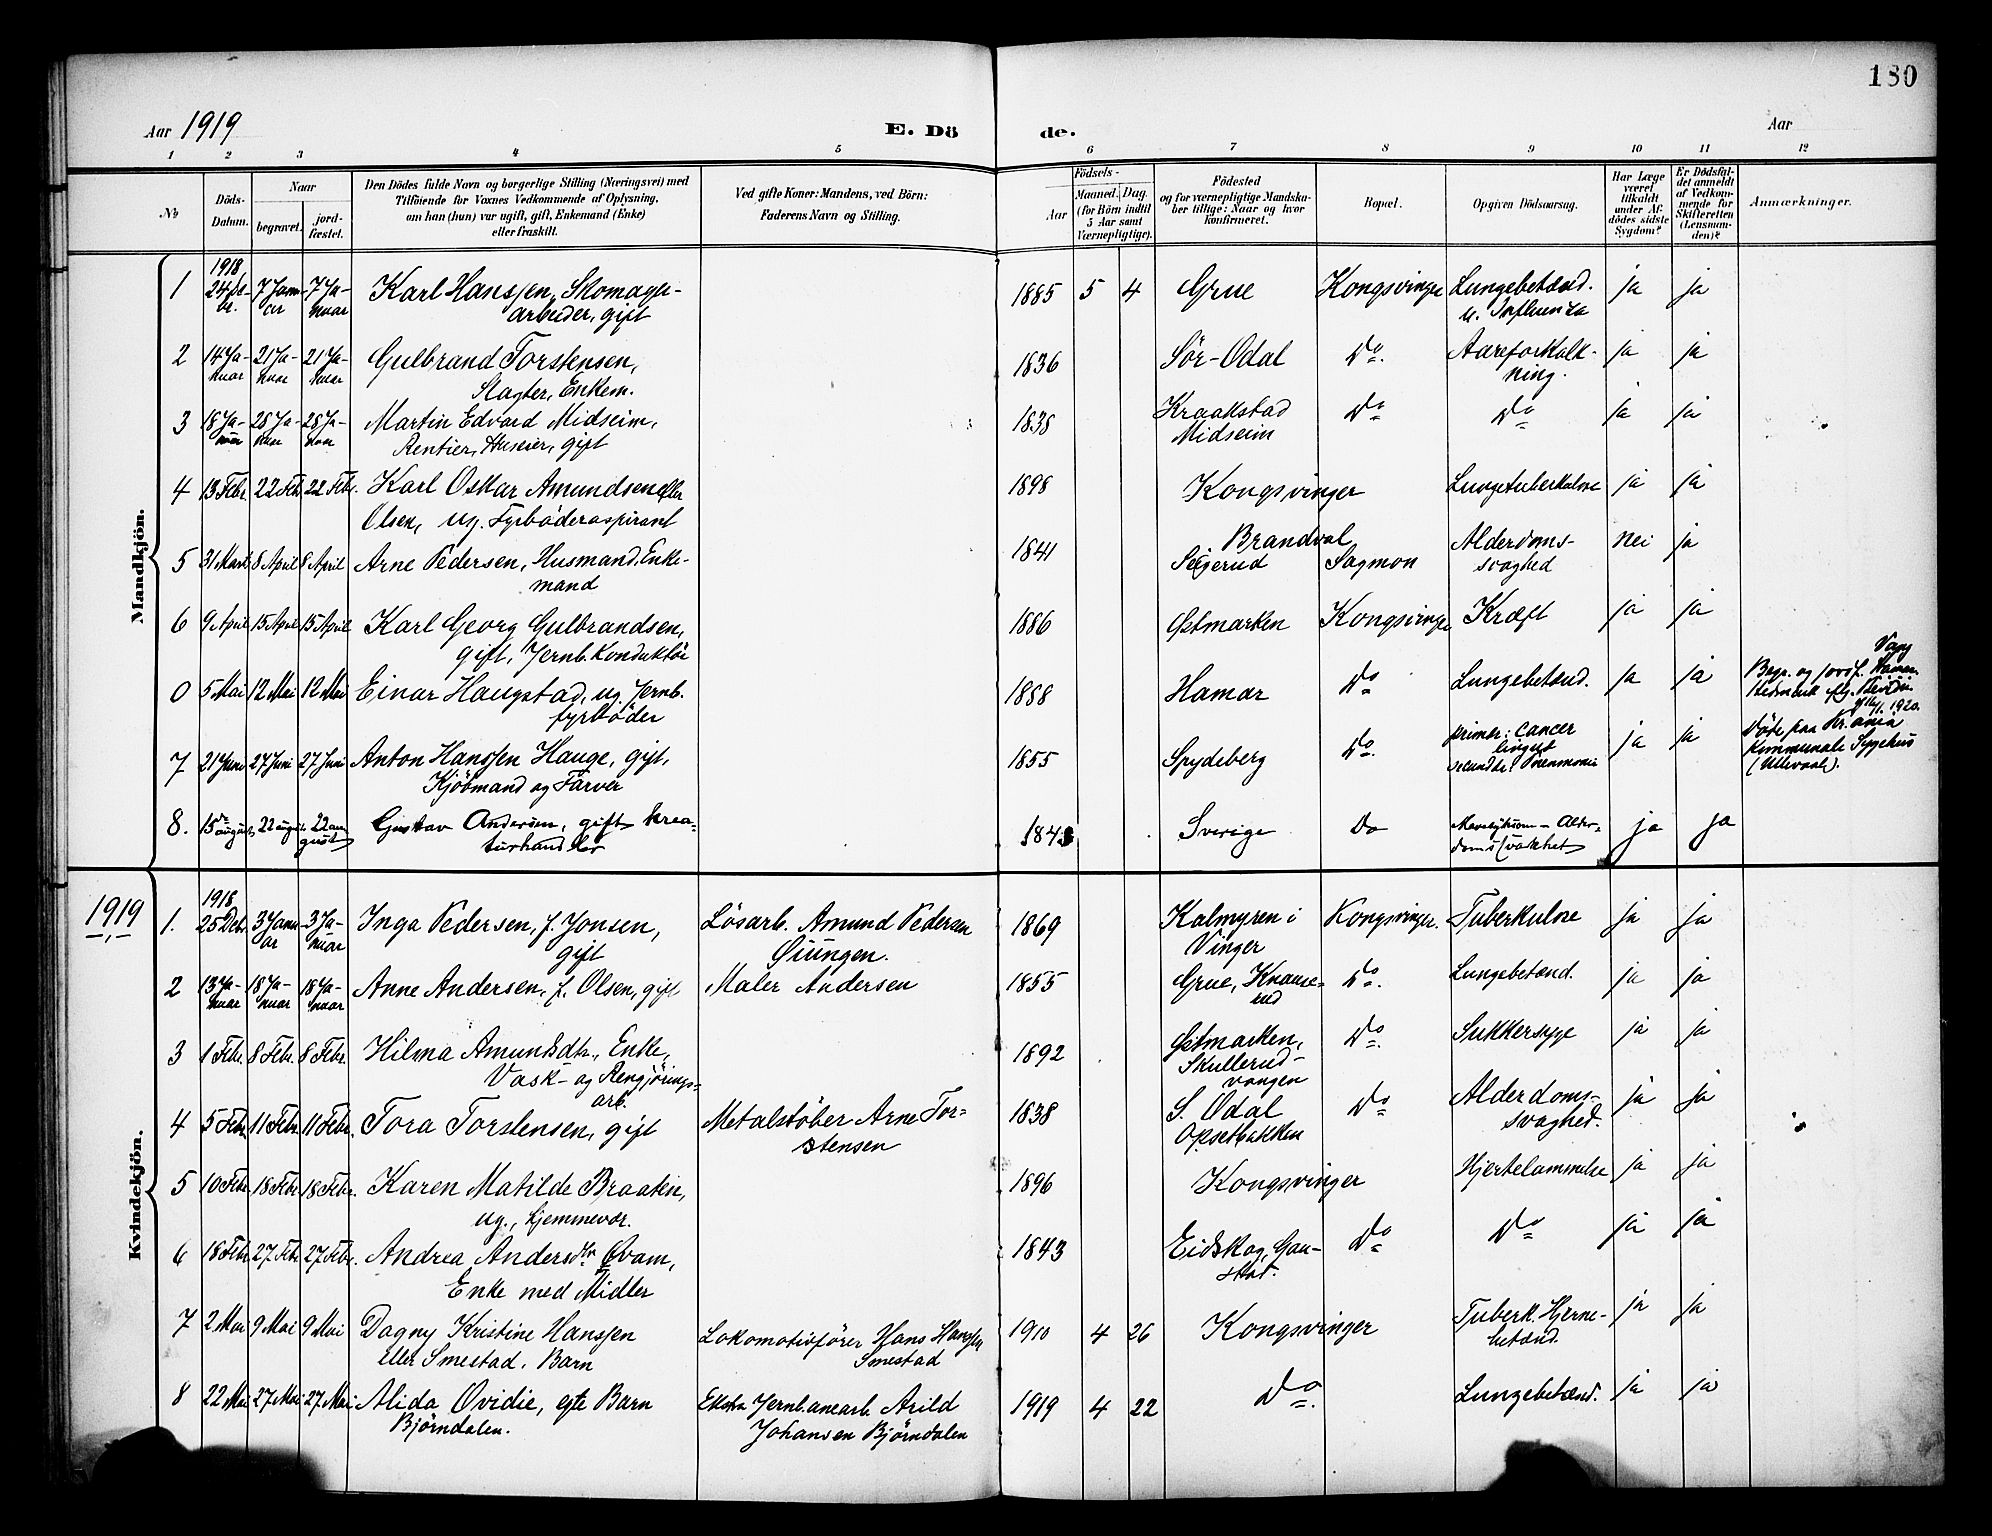 180
Aar 1919
E. Dö
de.
Aar
1 2 3 4 5 6 7 8 9 10 11 12
No
Döds-
Datum.
Naar
begravet.
jord-
fæstet.
Den Dödes fulde Navn og borgerlige Stilling (Næringsvei) med
Tilföiende for Voxnes Vedkommende af Oplysning,
om han (hun) var ugift, gift, Enkemand (Enke)
eller fraskilt.
Ved gifte Koner: Mandens, ved Börn:
Faderens Navn og Stilling.
Födsels-
Aar
Maaned.
Dag.
(for Börn indtil
5 Aar samt
Værnepligtige).
Födested
og for værnepligtige Mandska-
ber tillige: Naar og hvor
konfirmeret.
Bopæl.
Opgiven Dödsaarsag.
Har Læge
været
tilkaldt
under Af-
dödes sidste
Sygdom?
Er Dödsfal-
det anmeldt
af Vedkom-
mende for
Skifteretten
(Lensman-
den)?
Anmærkninger.
Mandkjön.
1 1918 24 De-br. 7 Janu-ar 7 Ja-nuar Karl Hanssen, Skomager-
arbeider, gift
1885 5 4 Grue Kongsvinger Lungebetænd.
u. Influenza ja ja
2 14 Ja-nuar 21 Ja-nuar 21 Ja-nuar Gulbrand Torstensen,
Slagter, Enkem.
1836 Sör-Odal Do. Aareforkalk-
ning. ja ja
3 18 Ja-nuar 28 Ja-nuar 28 Ja-nuar Martin Edvard Midseim,
Rentier, Huseier, gift
1838 Kraakstad
Midseim Do Do ja ja
4 13 Febr. 22 Feb. 22 Febr. Karl Oskar Amundsen eller
Olsen, ug. Fyrböderaspirant
1898 Kongsvinger Lungetuberkulose ja ja
5 31 Marts 8 April 8 April Arne Pedersen, Husmand, Enke-
mand
1841 Brandval
Seigerud Sagmon Alderdoms-
svaghed nei ja
6 9 April 15 April 15 April Karl Georg Gulbrandsen,
gift, Jernb. Konduktör
1886 Østmarken Kongsvinger Kræft ja ja
0 5 Mai 12 Mai 12 Mai Einar Haugstad, ug. Jernb.
fyrböder
1888 Hamar Do Lungebetænd. ja ja
Begr. og jordf. Vang
Hedmark
1920.
7 21 Juni 27 Juni 27 Juni Anton Hanssen Hauge, gift,
Kjöbmand og Farver
1855 Spydeberg Do. primær: Cancer
linguæ
Pneumonie ja ja
Döde paa Kr.ania
Kommunale Sygehus
(Ullevaal).
8. 15de august 22 august 22 au-gust Gustav Andersen, gift, krea-
turhandler
Sverige Do Mavesykdom - Alder-
domssvakhet ja ja
1919
Kvindekjön.
1. 1918 25 Debr. 3 Janu-ar 3 Ja-nuar Inga Pedersen, f. Jonsen,
gift
Lösarb. Amund Pedersen
1869 Kalmyren i
Vinger Kongsvinger. Tuberkulose ja ja
2 13 Ja-nuar 18 Ja-nuar 18 Ja-nuar Anne Andersen, f. Olsen, gift Maler Andersen
1855 Grue, Knause-
rud Do. Lungebetænd. ja ja
3 1 Febr. 8 Febr. 8 Febr. Hilma Amundsdtr., Enke,
Vask- og Rengjörings-
arb.
1892 Østmarken,
Skullerud-
vangen Do. Sukkersyge ja ja
4 5 Febr. 11 Febr. 11 Febr. Tora Torstensen, gift Metalstöber Arne Tor-
stensen
1838 S. Odal
Opsetbakken Do Alderdoms-
svaghed. ja ja
5 10 Febr. 18 Febr. 18 Febr. Karen Matilde Braaten,
ug., hjemmevær.
1896 Kongsvinger Hjertelammelse ja ja
6 18 Febr. 27 Febr. 27 Febr. Andrea Andersdtr. Kvam,
Enke med Midler
1843 Eidskog, Gau-
stad. Do Do ja ja
7 2 Mai 9 Mai 9 Mai Dagny Kristine Hanssen
eller Smestad. Barn
Lokomotivförer Hans Hanssen
Smestad
1910 4 26 Kongsvinger Tuberk. Hjerne-
betænd. ja ja
8 22 Mai 27 Mai 27 Mai Alida Ovidie, egte Barn
Björndalen.
Ekstra Jernbanearb. Arild
Johansen Björndalen
1919 4 22 Do. Lungebetænd. ja ja